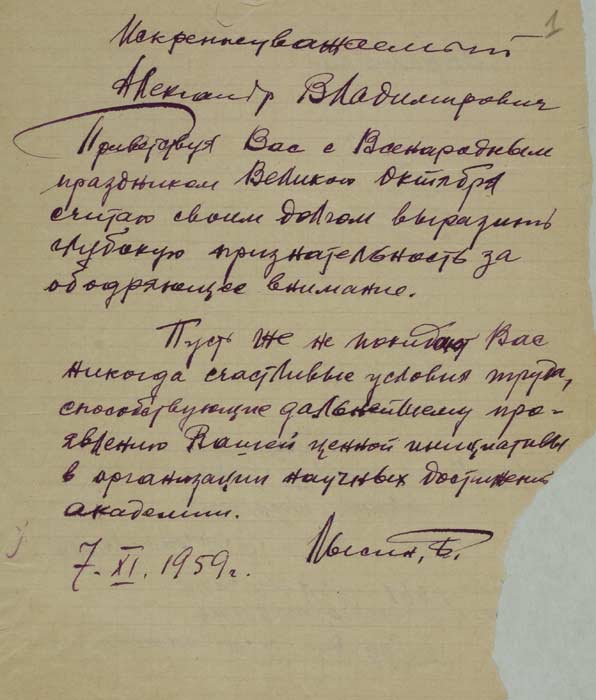 1
Искреннеуважаемый
Александр Владимирович
Приветствуя Вас с Всенародным
праздником Великого Октября
считаю своим долгом выразить
глубокую признательность за
ободряющее внимание.
Пусть же не покидают Вас
никогда счастливые условия труда,
способствующие дальнейшему про-
явлению Вашей ценной инициативы
в организации научных достижений
академии.
7.XI.1959г.
Лысин, Б.